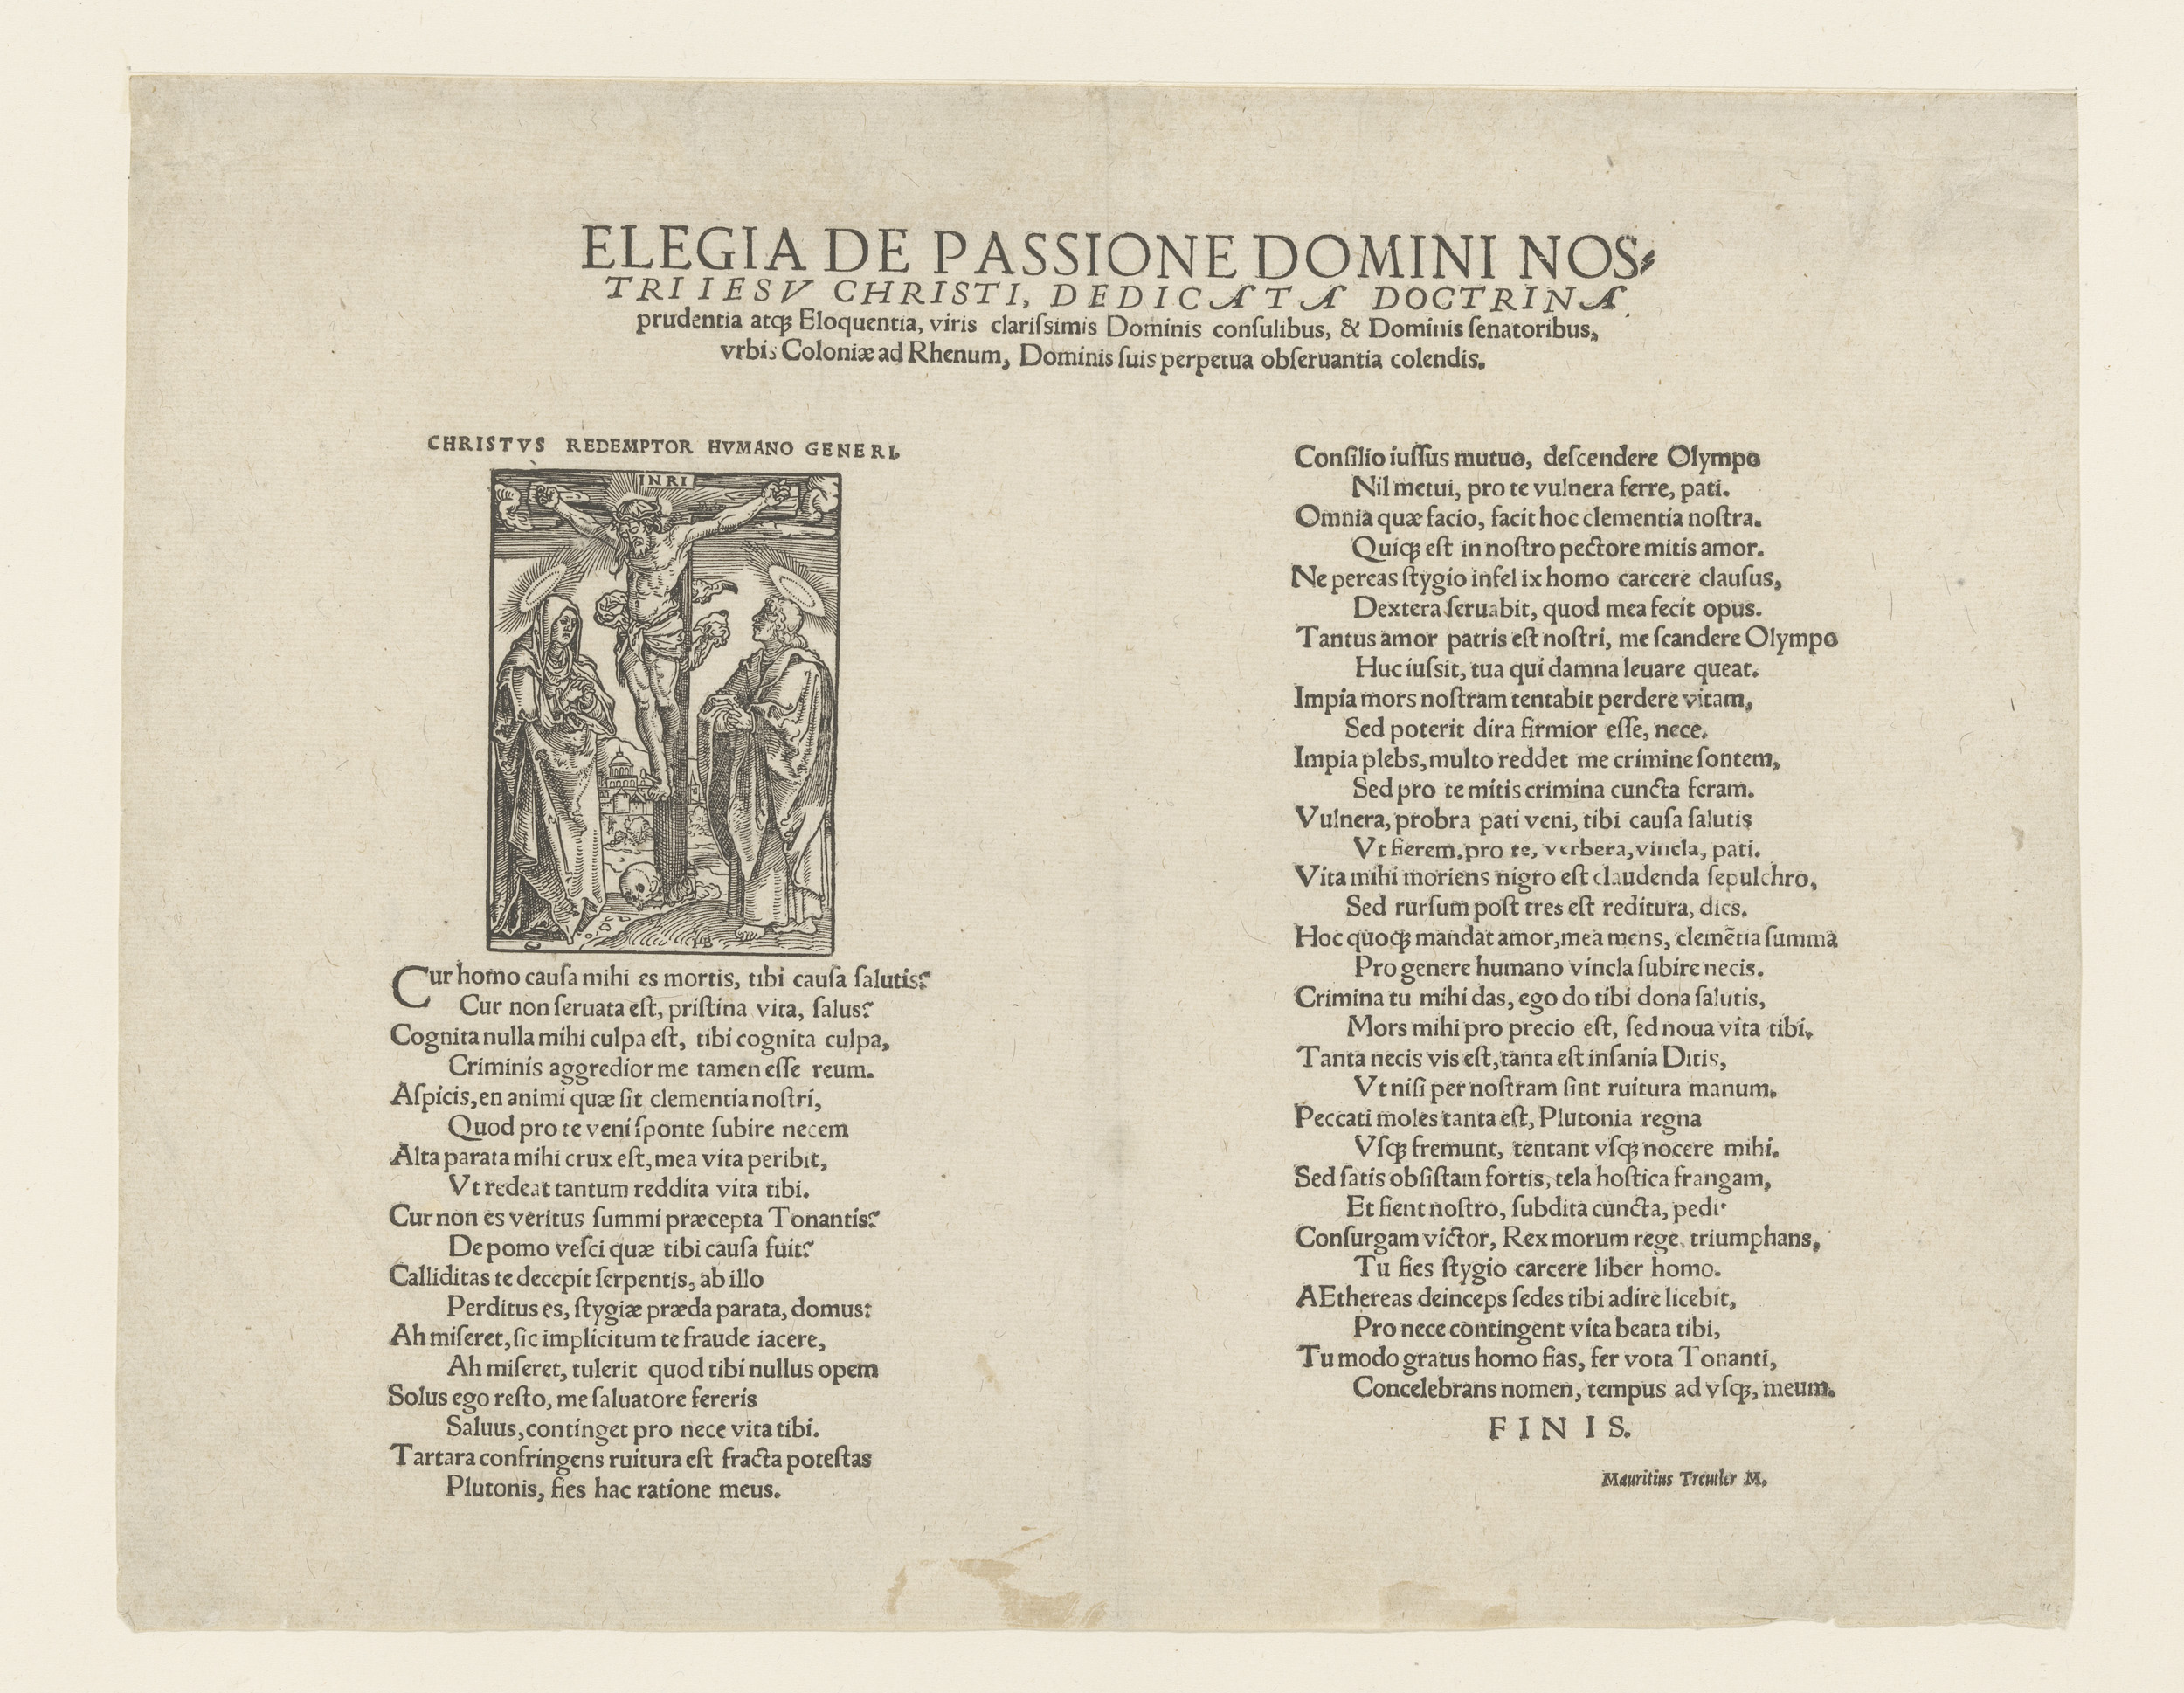 ELEGIA DE PASSIONE DOMINI NOS⸗
TRI IESV CHRISTI, DEDICATA DOCTRINA
prudentia atqꝫ Eloquentia, viris clariſsimis Dominis conſulibus, & Dominis ſenatoribus,
vrbis Coloniæ ad Rhenum, Dominis ſuis perpetua obſeruantia colendis.
CHRISTVS REDEMPTOR HVMANO GENERI.
INRI
Cur homo cauſa mihi es mortis, tibi cauſa ſalutis?
Cur non ſeruata eſt, priſtina vita, ſalus?
Cognita nulla mihi culpa eſt, tibi cognita culpa,
Criminis aggredior me tamen eſſe reum.
Aſpicis, en animi quæ ſit clementia noſtri,
Quod pro te veni ſponte ſubire necem
Alta parata mihi crux eſt, mea vita peribit,
Vt redeat tantum reddita vita tibi.
Cur non es veritus ſummi præcepta Tonantis?
De pomo veſci quæ tibi cauſa fuit?
Calliditas te decepit ſerpentis, ab illo
Perditus es, ſtygiæ præda parata, domus:
Ah miſeret, ſic implicitum te fraude iacere,
Ah miſeret, tulerit quod tibi nullus opem
Solus ego reſto, me ſaluatore fereris
Saluus, continget pro nece vita tibi.
Tartara confringens ruitura eſt fracta poteſtas
Plutonis, fies hac ratione meus.
Conſilio iuſſus mutuo, deſcendere Olympo
Nil metui, pro te vulnera ferre, pati.
Omnia quæ facio, facit hoc clementia noſtra.
Quiqꝫ eſt in noſtro pectore mitis amor.
Ne pereas ſtygio infelix homo carcere clauſus,
Dextera ſeruabit, quod mea fecit opus.
Tantus amor patris eſt noſtri, me ſcandere Olympo
Huc iuſsit, tua qui damna leuare queat.
Impia mors noſtram tentabit perdere vitam,
Sed poterit dira firmior eſſe, nece.
Impia plebs, multo reddet me crimine ſontem,
Sed pro te mitis crimina cuncta feram.
Vulnera, probra pati veni, tibi cauſa ſalutis
Vt fierem. pro te, verbera, vincla, pati.
Vita mihi moriens nigro eſt claudenda ſepulchro,
Sed rurſum poſt tres eſt reditura, dies.
Hoc quoqꝫ mandat amor, mea mens, clemẽtia ſumma
Pro genere humano vincla ſubire necis.
Crimina tu mihi das, ego do tibi dona ſalutis,
Mors mihi pro precio eſt, ſed noua vita tibi.
Tanta necis vis eſt, tanta eſt inſania Ditis,
Vt niſi per noſtram ſint ruitura manum.
Peccati moles tanta eſt, Plutonia regna
Vſqꝫ fremunt, tentant vſqꝫ nocere mihi.
Sed ſatis obſiſtam fortis, tela hoſtica frangam,
Et fient noſtro, ſubdita cuncta, pedi.
Conſurgam victor, Rex morum rege, triumphans,
Tu fies ſtygio carcere liber homo.
AEthereas deinceps ſedes tibi adire licebit,
Pro nece contingent vita beata tibi,
Tu modo gratus homo fias, fer vota Tonanti,
Concelebrans nomen, tempus ad vſqꝫ, meum.
FINIS.
Mauritius Treutler M.